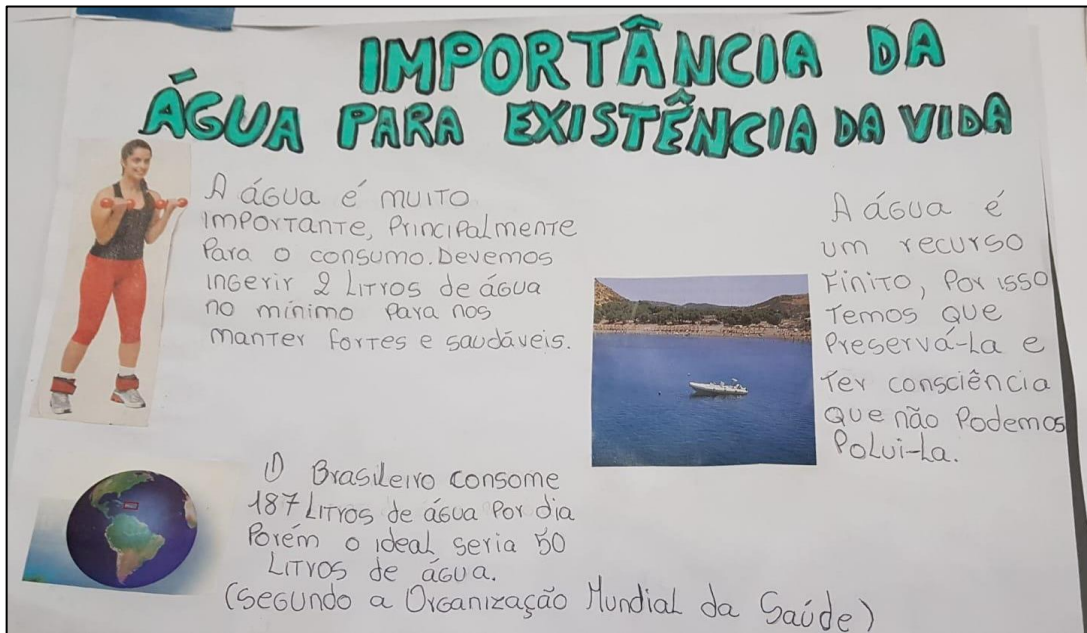 IMPORTÂNCIA DA
ÁGUA PARA EXISTÊNCIA DA VIDA
A água é muito
importante, principalmente
para o consumo. Devemos
ingerir 2 litros de água
no mínimo para nos
manter fortes e saudáveis.
A água é
um recurso
finito, por isso
temos que
preservá-la e
ter consciência
que não podemos
polui-la.
O Brasileiro consome
187 litros de água por dia
porém o ideal seria 50
litros de água.
(segundo a Organização Mundial da Saúde)